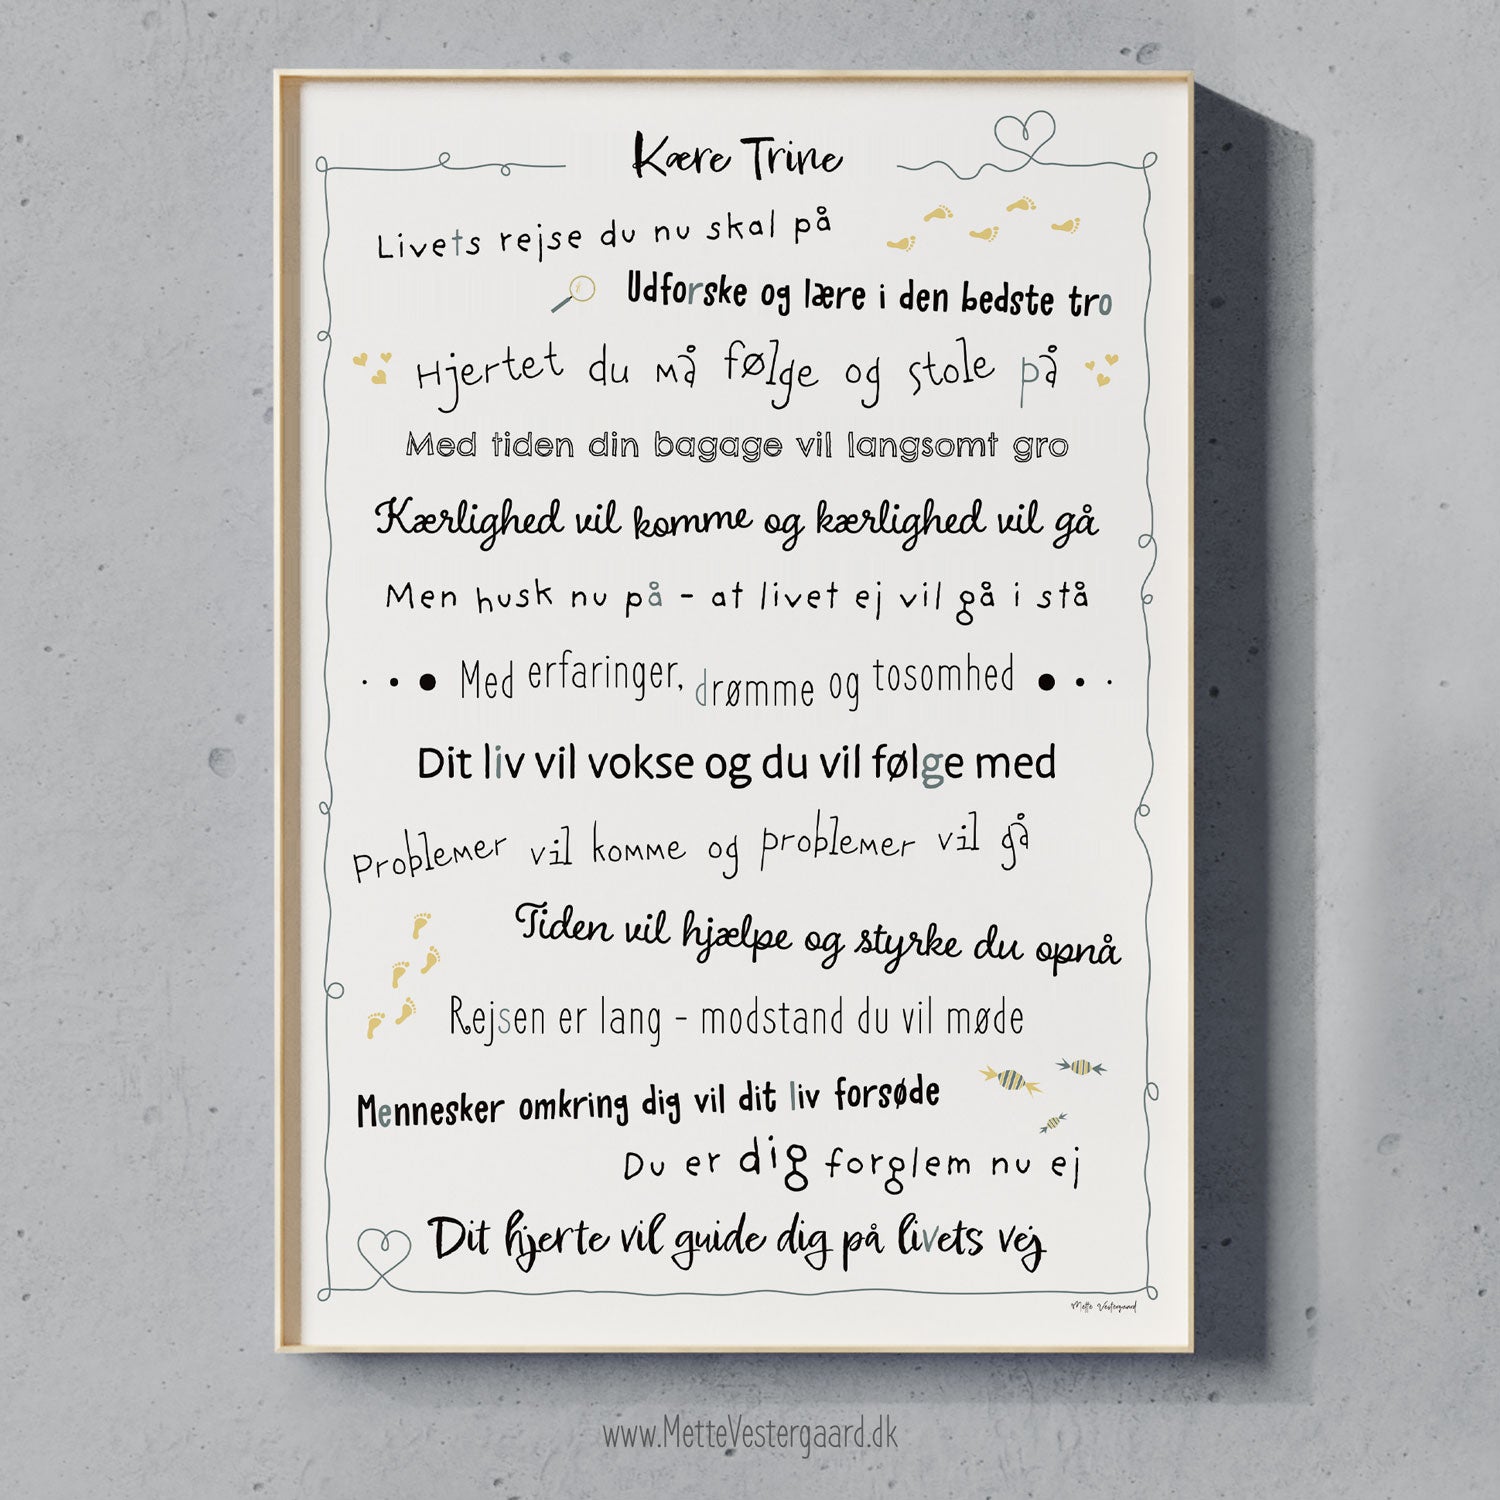 Kære Trine
Livets rejse du nu skal på
Udforske og lære i den bedste tro
Hjertet du må følge og stole på
Med tiden din bagage vil langsomt gro
Kærlighed vil komme og kærlighed vil gå
Men husk nu på - at livet ej vil gå i stå
Med erfaringer, drømme og tosomhed
Dit liv vil vokse og du vil følge med
Problemer vil komme og problemer vil gå
Tiden vil hjælpe og styrke du opnå
Rejsen er lang - modstand du vil møde
Mennesker omkring dig vil dit liv forsøde
Du er dig forglem nu ej
Dit hjerte vil guide dig på livets vej
Mette Vestergaard
www.MetteVestergaard.dk